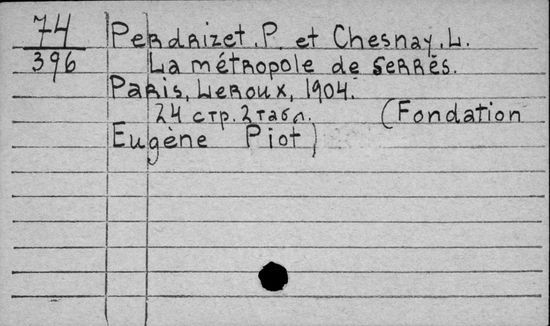 74 Perdrizet. P. et Chesnay. L.
396 La métropole de Serrès.
Paris, Leroux, 1904.
24 стр. 2 табл. (Fondation
Eugène Piot)